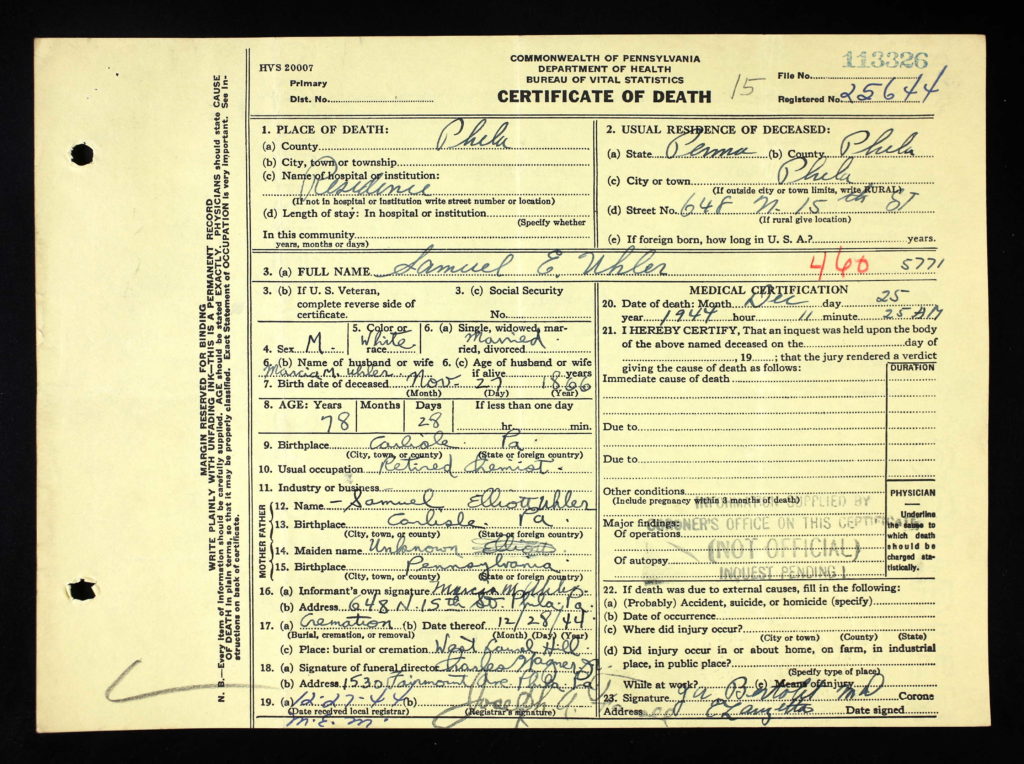 HVS 20007
Primary
Dist. No.
COMMONWEALTH OF PENNSYLVANIA
DEPARTMENT OF HEALTH
BUREAU OF VITAL STATISTICS
CERTIFICATE OF DEATH
15
113326
File No.
Registered No. 25644
MARGIN RESERVED FOR BINDING
WRITE PLAINLY WITH UNFADING INK—THIS IS A PERMANENT RECORD
N. B.—Every item of information should be carefully supplied. AGE should be stated EXACTLY. PHYSICIANS should state CAUSE
OF DEATH in plain terms, so that it may be properly classified. Exact Statement of OCCUPATION is very important. See in-
structions on back of certificate.
1. PLACE OF DEATH:
(a) County Phila
(b) City, town or township
(c) Name of hospital or institution:
Residence
(If not in hospital or institution write street number or location)
(d) Length of stay: In hospital or institution
(Specify whether
In this community
years, months or days)
2. USUAL RESIDENCE OF DECEASED:
(a) State Penna (b) County Phila
(c) City or town Phila
(If outside city or town limits, write RURAL)
(d) Street No. 648 N. 15th ST
(If rural give location)
(e) If foreign born, how long in U. S. A.? years.
3. (a) FULL NAME Samuel E. Uhler
460 5771
3. (b) If U. S. Veteran,
complete reverse side of
certificate.
3. (c) Social Security
No.
4. Sex M
5. Color or
race White
6. (a) Single, widowed, mar-
ried, divorced Married
6. (b) Name of husband or wife
Marcia M. Uhler
6. (c) Age of husband or wife
if alive years
7. Birth date of deceased Nov 27 1866
(Month) (Day) (Year)
8. AGE: Years Months Days If less than one day
78 28 hr. min.
9. Birthplace Carlisle Pa.
(City, town, or county) (State or foreign country)
10. Usual occupation Retired Chemist
11. Industry or business
MOTHER FATHER
12. Name Samuel Elliott Uhler
13. Birthplace Carlisle Pa.
(City, town, or county) (State or foreign country)
14. Maiden name Unknown
15. Birthplace Pennsylvania
(City, town, or county) (State or foreign country)
16. (a) Informant's own signature Marcia M. Uhler
(b) Address 648 N 15th St. Phila Pa.
17. (a) Cremation (b) Date thereof 12/28/44
(Burial, cremation, or removal) (Month) (Day) (Year)
(c) Place: burial or cremation West Laurel Hill
18. (a) Signature of funeral director Charles Wagner
(b) Address 1530 Fairmount Ave Phila Pa
19. (a) 12-27-44 (b) Joseph
(Date received local registrar) (Registrar's signature)
M. E. M.
MEDICAL CERTIFICATION
20. Date of death: Month Dec day 25
year 1944 hour 11 minute 25 AM
21. I HEREBY CERTIFY, That an inquest was held upon the body
of the above named deceased on the day of
, 19 ; that the jury rendered a verdict
giving the cause of death as follows:
DURATION
Immediate cause of death
Due to
Due to
Other conditions
(Include pregnancy within 3 months of death)
Major findings:
Of operations
Of autopsy
PHYSICIAN
Underline
the cause to
which death
should be
charged sta-
tistically.
INFORMATION SUPPLIED BY
CORONER'S OFFICE ON THIS CERTIFICATE
(NOT OFFICIAL)
INQUEST PENDING !
22. If death was due to external causes, fill in the following:
(a) (Probably) Accident, suicide, or homicide (specify)
(b) Date of occurrence
(c) Where did injury occur?
(City or town) (County) (State)
(d) Did injury occur in or about home, on farm, in industrial
place, in public place?
(Specify type of place)
While at work? (e) Means of injury
23. Signature Corone
Address Date signed